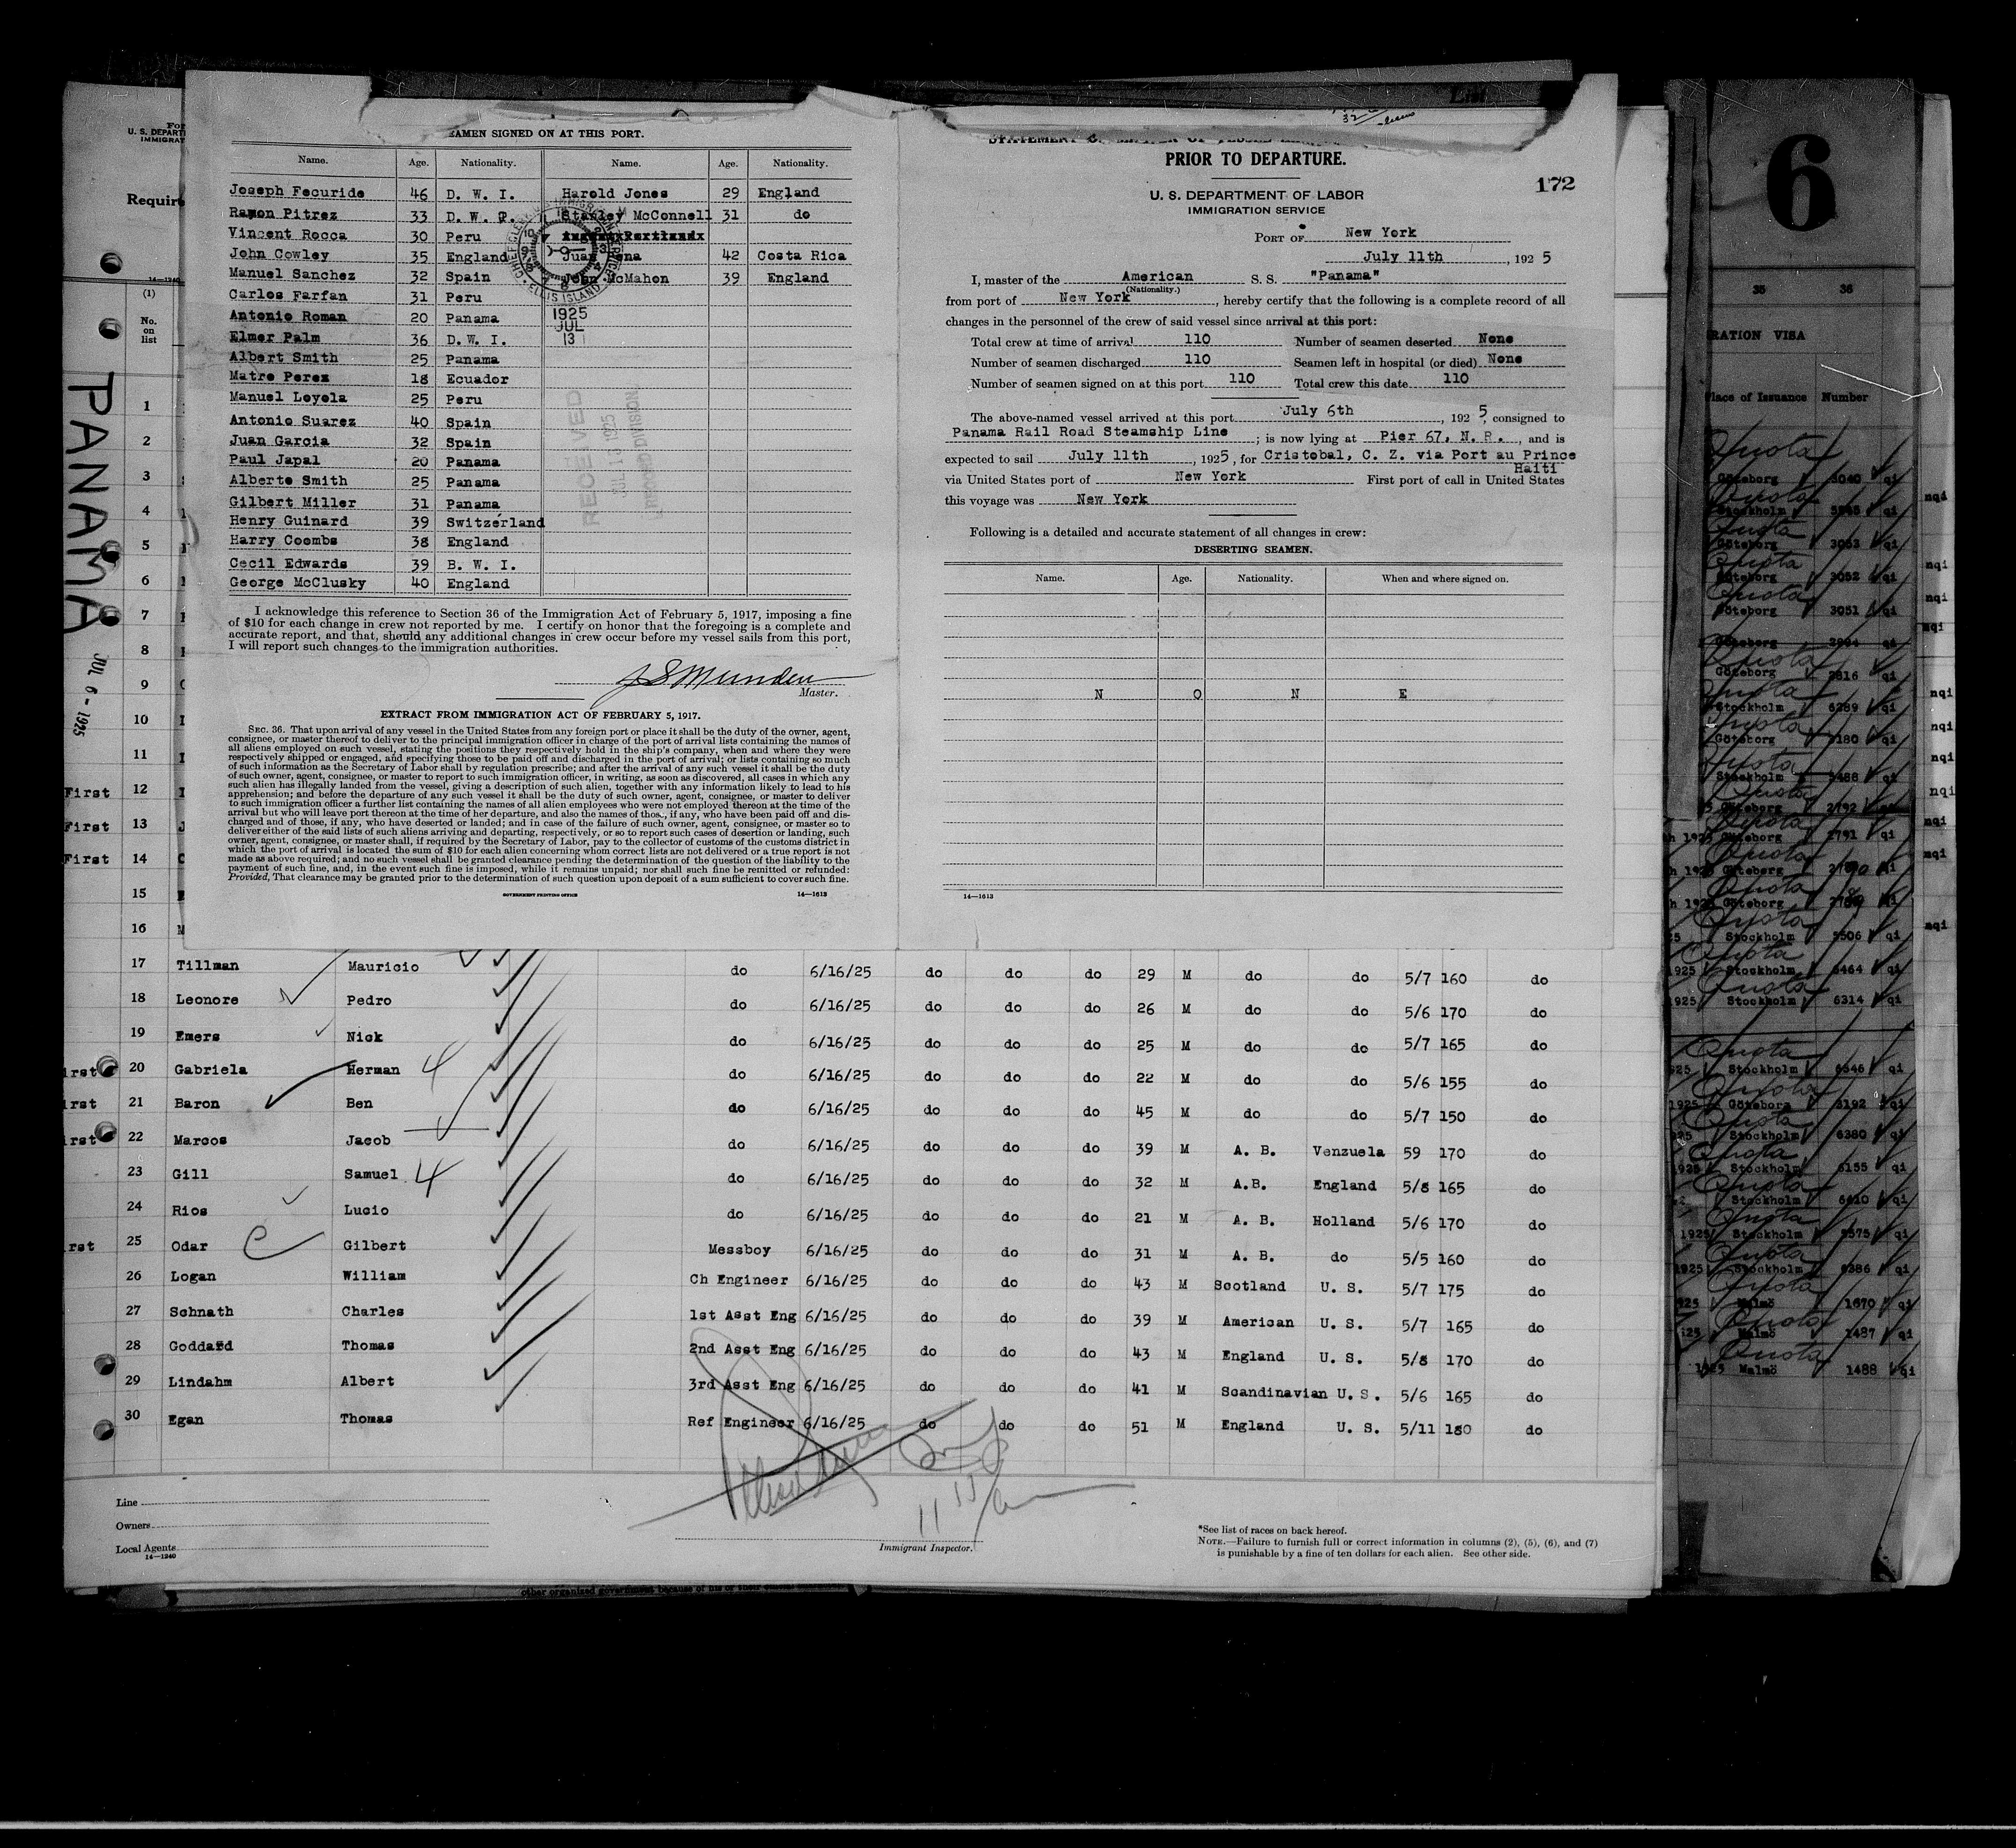 SEAMEN SIGNED ON AT THIS PORT.
Name. Age. Nationality. Name. Age. Nationality.
Joseph Fecuride 46 D. W. I. Harold Jones 29 England
Ramon Pitrez 33 D. W. P. Stanley McConnell 31 do
Vincent Rocca 30 Peru
John Cowley 35 England Juan Pena 42 Costa Rica
Manuel Sanchez 32 Spain John McMahon 39 England
Carlos Farfan 31 Peru
Antonio Roman 20 Panama
Elmer Palm 36 D. W. I.
Albert Smith 25 Panama
Matre Perez 18 Ecuador
Manuel Loyola 25 Peru
Antonio Suarez 40 Spain
Juan Garcia 32 Spain
Paul Japal 20 Panama
Alberto Smith 25 Panama
Gilbert Miller 31 Panama
Henry Guinard 39 Switzerland
Harry Coombs 38 England
Cecil Edwards 39 B. W. I.
George McClusky 40 England
ELLIS ISLAND
1925
JUL
13
RECEIVED
JUL 13 1925
RECORD DIVISION
I acknowledge this reference to Section 36 of the Immigration Act of February 5, 1917, imposing a fine
of $10 for each change in crew not reported by me. I certify on honor that the foregoing is a complete and
accurate report, and that, should any additional changes in crew occur before my vessel sails from this port,
I will report such changes to the immigration authorities.
J S Munden
Master.
EXTRACT FROM IMMIGRATION ACT OF FEBRUARY 5, 1917.
SEC. 36. That upon arrival of any vessel in the United States from any foreign port or place it shall be the duty of the owner, agent,
consignee, or master thereof to deliver to the principal immigration officer in charge of the port of arrival lists containing the names of
all aliens employed on such vessel, stating the positions they respectively hold in the ship's company, when and where they were
respectively shipped or engaged, and specifying those to be paid off and discharged in the port of arrival; or lists containing so much
of such information as the Secretary of Labor shall by regulation prescribe; and after the arrival of any such vessel it shall be the duty
of such owner, agent, consignee, or master to report to such immigration officer, in writing, as soon as discovered, all cases in which any
such alien has illegally landed from the vessel, giving a description of such alien, together with any information likely to lead to his
apprehension; and before the departure of any such vessel it shall be the duty of such owner, agent, consignee, or master to deliver
to such immigration officer a further list containing the names of all alien employees who were not employed thereon at the time of the
arrival but who will leave port thereon at the time of her departure, and also the names of those, if any, who have been paid off and dis-
charged and of those, if any, who have deserted or landed; and in case of the failure of such owner, agent, consignee, or master so to
deliver either of the said lists of such aliens arriving and departing, respectively, or so to report such cases of desertion or landing, such
owner, agent, consignee, or master shall, if required by the Secretary of Labor, pay to the collector of customs of the customs district in
which the port of arrival is located the sum of $10 for each alien concerning whom correct lists are not delivered or a true report is not
made as above required; and no such vessel shall be granted clearance pending the determination of the question of the liability to the
payment of such fine, and, in the event such fine is imposed, while it remains unpaid; nor shall such fine be remitted or refunded:
Provided, That clearance may be granted prior to the determination of such question upon deposit of a sum sufficient to cover such fine.
GOVERNMENT PRINTING OFFICE 14—1613
PRIOR TO DEPARTURE.
172
U. S. DEPARTMENT OF LABOR
IMMIGRATION SERVICE
PORT OF New York
July 11th, 1925
I, master of the American S. S. "Panama"
(Nationality.)
from port of New York, hereby certify that the following is a complete record of all
changes in the personnel of the crew of said vessel since arrival at this port:
Total crew at time of arrival 110 Number of seamen deserted None
Number of seamen discharged 110 Seamen left in hospital (or died) None
Number of seamen signed on at this port 110 Total crew this date 110
The above-named vessel arrived at this port July 6th, 1925, consigned to
Panama Rail Road Steamship Line; is now lying at Pier 67, N. R., and is
expected to sail July 11th, 1925, for Cristobal, C. Z. via Port au Prince
Haiti
via United States port of New York First port of call in United States
this voyage was New York
Following is a detailed and accurate statement of all changes in crew:
DESERTING SEAMEN.
Name. Age. Nationality. When and where signed on.
N O N E
14—1613
PANAMA JUL 6-1925
U. S. DEPART
IMMIGRAT
Require
14—1240
(1)
No.
on
list
1
2
3
4
5
6
7
8
9
10
11
First 12
First 13
First 14
15
16
17 Tillman Mauricio do 6/16/25 do do do 29 M do do 5/7 160 do
18 Leonore Pedro do 6/16/25 do do do 26 M do do 5/6 170 do
19 Emers Nick do 6/16/25 do do do 25 M do do 5/7 165 do
irst 20 Gabriela Herman 4 do 6/16/25 do do do 22 M do do 5/6 155 do
irst 21 Baron Ben do 6/16/25 do do do 45 M do do 5/7 150 do
irst 22 Marcos Jacob do 6/16/25 do do do 39 M A. B. Venzuela 59 170 do
23 Gill Samuel 4 do 6/16/25 do do do 32 M A.B. England 5/8 165 do
24 Rios Lucio do 6/16/25 do do do 21 M A. B. Holland 5/6 170 do
rst 25 Odar Gilbert Messboy 6/16/25 do do do 31 M A. B. do 5/5 160 do
26 Logan William Ch Engineer 6/16/25 do do do 43 M Scotland U. S. 5/7 175 do
27 Schnath Charles 1st Asst Eng 6/16/25 do do do 39 M American U. S. 5/7 165 do
28 Goddard Thomas 2nd Asst Eng 6/16/25 do do do 43 M England U. S. 5/8 170 do
29 Lindahm Albert 3rd Asst Eng 6/16/25 do do do 41 M Scandinavian U. S. 5/6 165 do
30 Egan Thomas Ref Engineer 6/16/25 do do do 51 M England U. S. 5/11 180 do
Line
Owners
Local Agents
14—1240
Immigrant Inspector.
*See list of races on back hereof.
NOTE.—Failure to furnish full or correct information in columns (2), (5), (6), and (7)
is punishable by a fine of ten dollars for each alien. See other side.
other organized government because of his or their
6
35 36
RATION VISA
Place of Issuance Number
Quota
Göteborg 3040 qi
Stockholm qi nqi
Göteborg 3053 qi
Göteborg 3052 qi nqi
Göteborg 3051 qi nqi
Göteborg 2904 qi nqi
Göteborg 2816 qi
Stockholm 6289 qi nqi
Göteborg 3180 qi nqi
Stockholm 5488 qi nqi
Göteborg 2792 nqi
1925 Göteborg 2791 qi nqi
Göteborg qi nqi
Göteborg qi
Stockholm 5506 qi nqi
1925 Stockholm 6464 qi
1925 Stockholm 6314 qi
Stockholm 6546 qi
1925 Göteborg 3192 qi
Stockholm 6380 qi
Stockholm 6155 qi
Stockholm 6410 qi
1925 Stockholm 5575 qi
1925 Stockholm 6386 qi
Malmö 1670 qi
Malmö 1487 qi
1925 Malmö 1488 qi